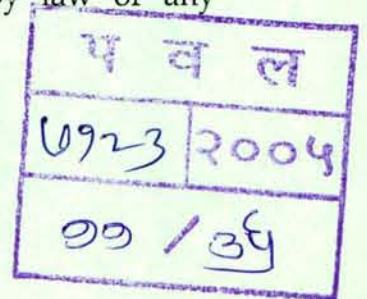 law or any
प व ल
७१२३ २००५
११ /